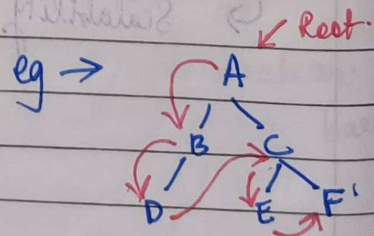 Root.
eg → A
B C
D E F'